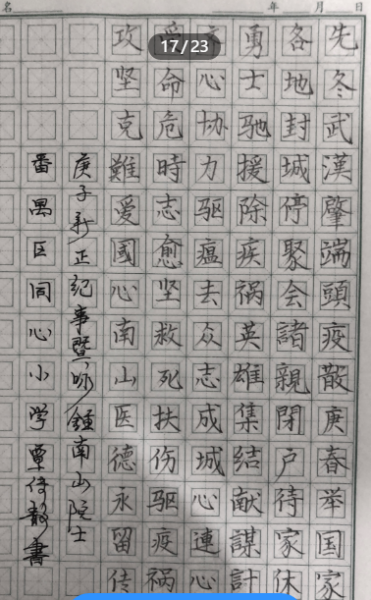 名 年 月 日
17/23
先冬武漢肇端頭疫散庚春举国家
各地封城停聚会諸親閉户待家休
勇士驰援除疾祸英雄集结献謀計
心协力驱瘟去众志成城心連心
受命危時志愈坚救死扶伤驱疫祸
攻坚克難爱國心南山医德永留传
庚子新正紀事暨咏鍾南山院士
番禺区同心小学覃書